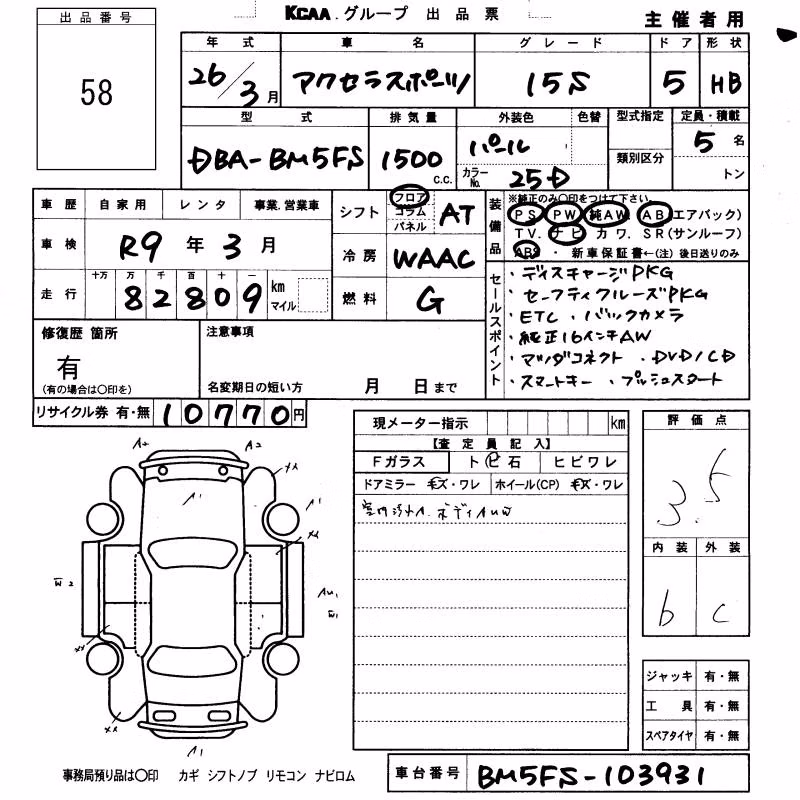 KCAA.グループ 出品票 主催者用
出品番号
58
年式 車名 グレード ドア 形状
26/3月 アクセラスポーツ 15S 5 HB
型式 排気量 外装色 色替 型式指定 定員・積載
DBA-BM5FS 1500 C.C. パール カラーNo. 25D 類別区分 5名
トン
車歴 自家用 レンタ 事業.営業車
車検 R9年3月
走行 十万 万 千 百 十 一
82809 km マイル
シフト フロア コラム パネル AT
冷房 WAAC
燃料 G
装備品
※純正のみ〇印をつけて下さい。
PS PW 純AW AB エアバック)
TV. ナビ カワ. SR(サンルーフ)
ABS ・ 新車保証書←(注)後日送りのみ
セールスポイント
・ディスチャージPKG
・セーフティクルーズPKG
・ETC ・バックカメラ
・純正16インチAW
・マツダコネクト ・DVD/CD
・スマートキー ・プッシュスタート
修復歴 箇所
有
(有の場合は〇印を)
注意事項
名変期日の短い方 月 日まで
リサイクル券 有・無 10770円
現メーター指示 km
【査定員記入】
Fガラス トビ石 ヒビワレ
ドアミラー キズ・ワレ ホイール(CP) キズ・ワレ
評価点
3.5
内装 外装
b c
ジャッキ 有・無
工具 有・無
スペアタイヤ 有・無
A2 A2
XX
A1 A1
XX
W2 AU1
W1
XX
XX
A1
事務局預り品は〇印 カギ シフトノブ リモコン ナビロム
車台番号 BM5FS-103931